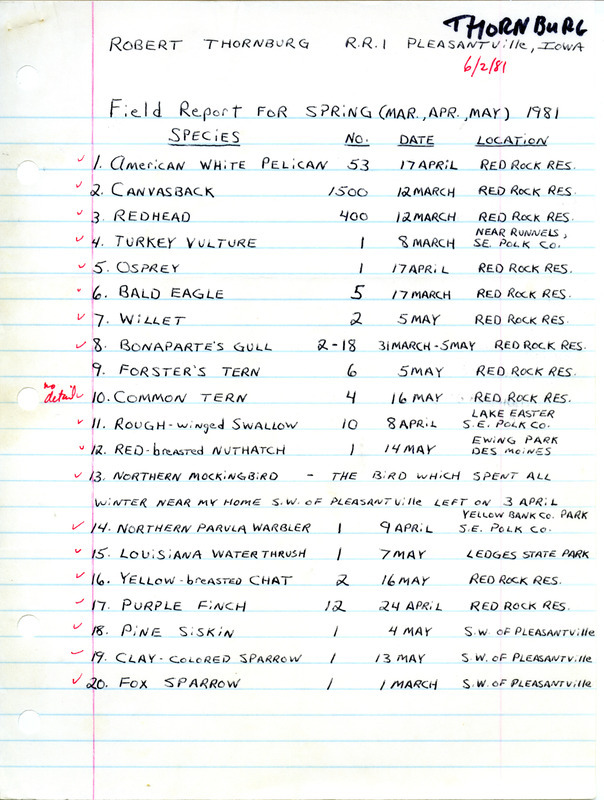 THORNBURG
ROBERT THORNBURG R.R.1 PLEASANTVille, IOWA
6/2/81
Field Report FOR SPRING (MAR., APR., MAY) 1981
SPECIES NO. DATE LOCATION
1. American WHITE PELICAN 53 17 APRIL RED ROCK RES.
2. CANVASBACK 1500 12 MARCH RED ROCK RES.
3. REDHEAD 400 12 MARCH RED ROCK RES.
4. TURKEY VULTURE 1 8 MARCH NEAR RUNNELS, S.E. POLK CO.
5. OSPREY 1 17 APRIL RED ROCK RES.
6. BALD EAGLE 5 17 MARCH RED ROCK RES.
7. WILLET 2 5 MAY RED ROCK RES.
8. BONAPARTE'S GULL 2-18 31 MARCH - 5 MAY RED ROCK RES.
9. FORSTER'S TERN 6 5 MAY RED ROCK RES.
no details 10. COMMON TERN 4 16 MAY RED ROCK RES.
11. ROUGH-winged SWALLOW 10 8 APRIL LAKE EASTER S.E. POLK CO.
12. RED-breasted NUTHATCH 1 14 MAY EWING PARK DES MOINES
13. NORTHERN MOCKINGBIRD - THE BIRD WHICH SPENT ALL
WINTER NEAR MY HOME S.W. OF PLEASANTVille LEFT ON 3 APRIL
14. NORTHERN PARULA WARBLER 1 9 APRIL YELLOW BANK CO. PARK S.E. POLK CO.
15. LOUISIANA WATERTHRUSH 1 7 MAY LEDGES STATE PARK
16. YELLOW-breasted CHAT 2 16 MAY RED ROCK RES.
17. PURPLE FINCH 12 24 APRIL RED ROCK RES.
18. PINE SISKIN 1 4 MAY S.W. OF PLEASANTVille
19. CLAY-COLORED SPARROW 1 13 MAY S.W. OF PLEASANTVille
20. FOX SPARROW 1 1 MARCH S.W. OF PLEASANTVille